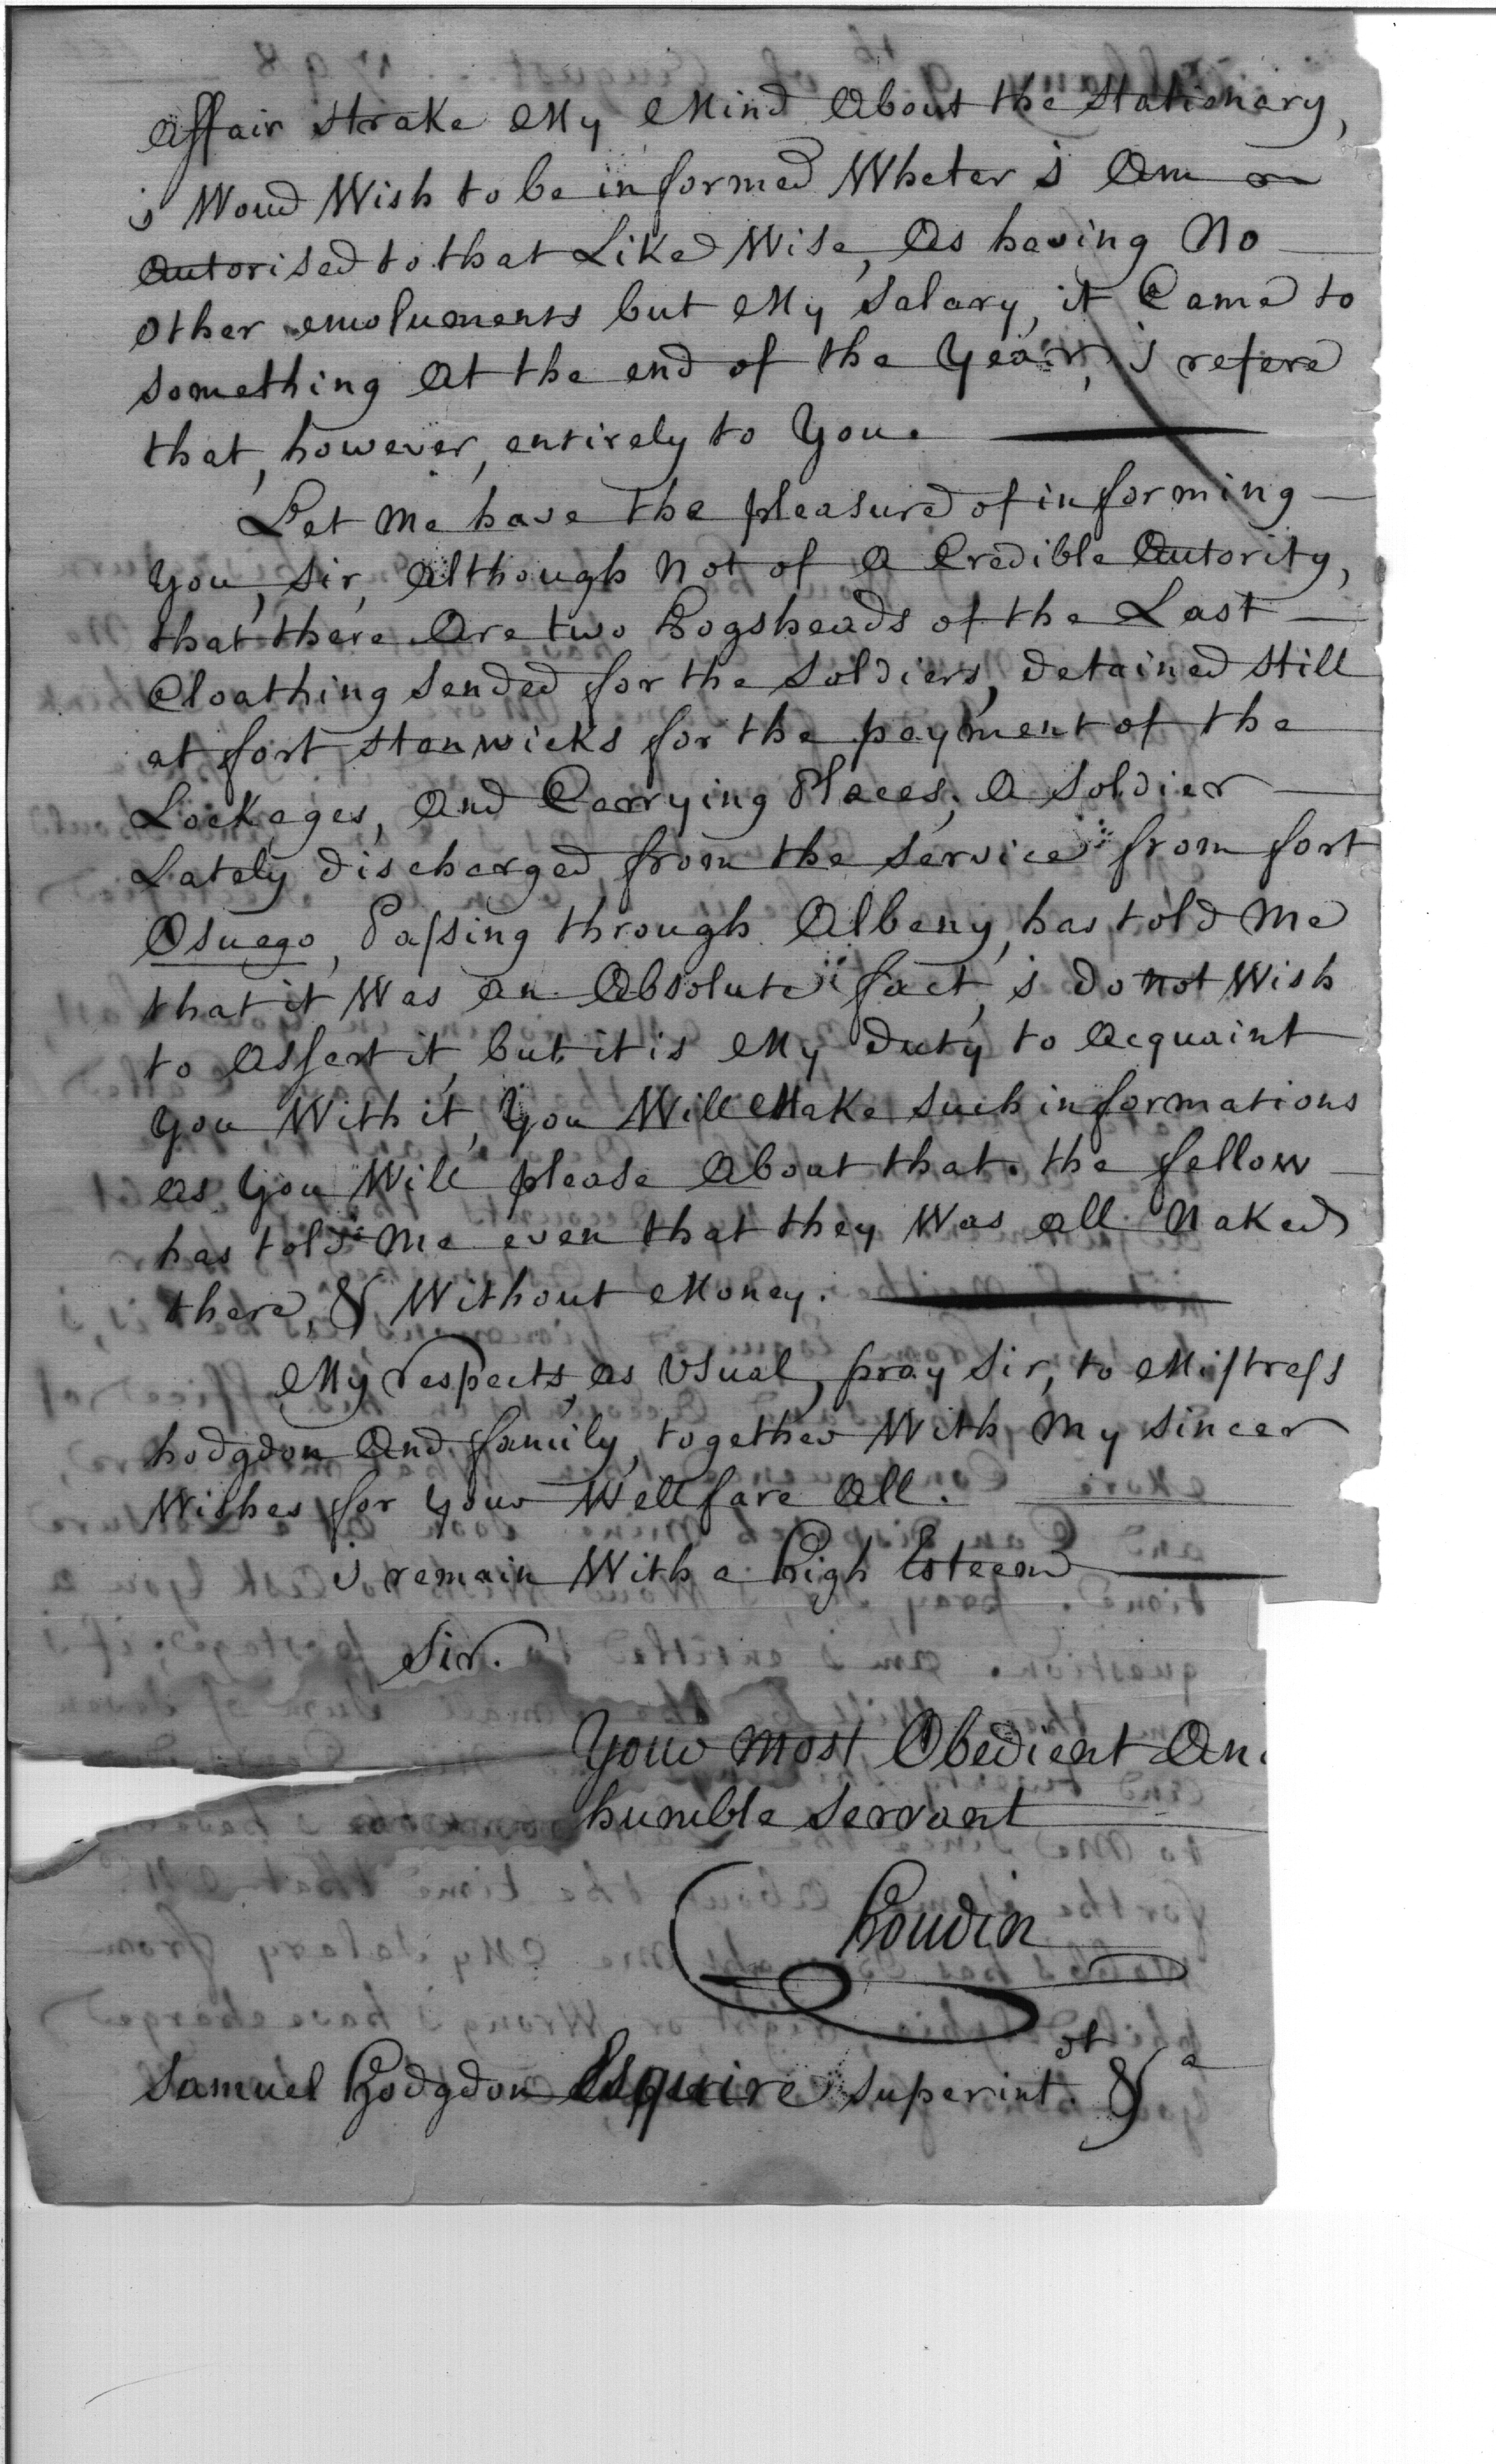 affair strake My Mind About the stationary,
i Woud Wish to be informed Wheter i Am
Autorised to that Like Wise, As having No
other emoluments but My Salary, it Came to
something At the end of the Year, i refere
that, however, entirely to You.
Let me have the pleasure of informing
You, Sir, Although Not of A Credible Autority,
that there Are two Hogsheads of the Last
Cloathing sended for the Soldiers, detained still
at fort stanwicks for the payment of the
Lockages, And Carrying Places, A Soldier
Lately discharged from the service from fort
Osuego, Passing through Albany, has told Me
that it Was an Absolute fact, i do not Wish
to Assert it, but it is My duty to Acquaint
You With it, You Will Make such informations
as You Will please About that. the fellow
has told me even that they Was all Naked
there, & Without Money.
My respects, as Usual, pray Sir, to Mistress
hodgdon And family, together With My sincer
Wishes for Your Wellfare All.
i remain With a high Esteem
Sir.
Your most Obedient An
humble Servant
Samuel Hodgdon Esquire Superint.